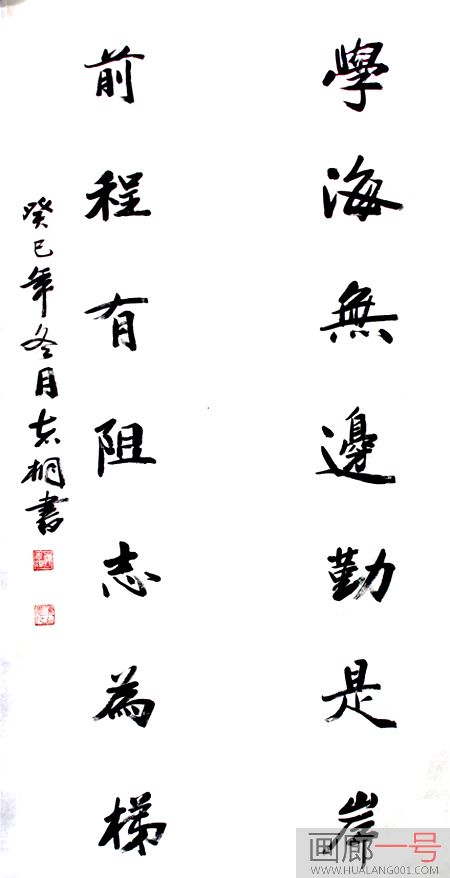 學海無邊勤是岸
前程有阻志為梯
癸巳年冬月志桐書
画廊一号
WWW.HUALANG001.COM